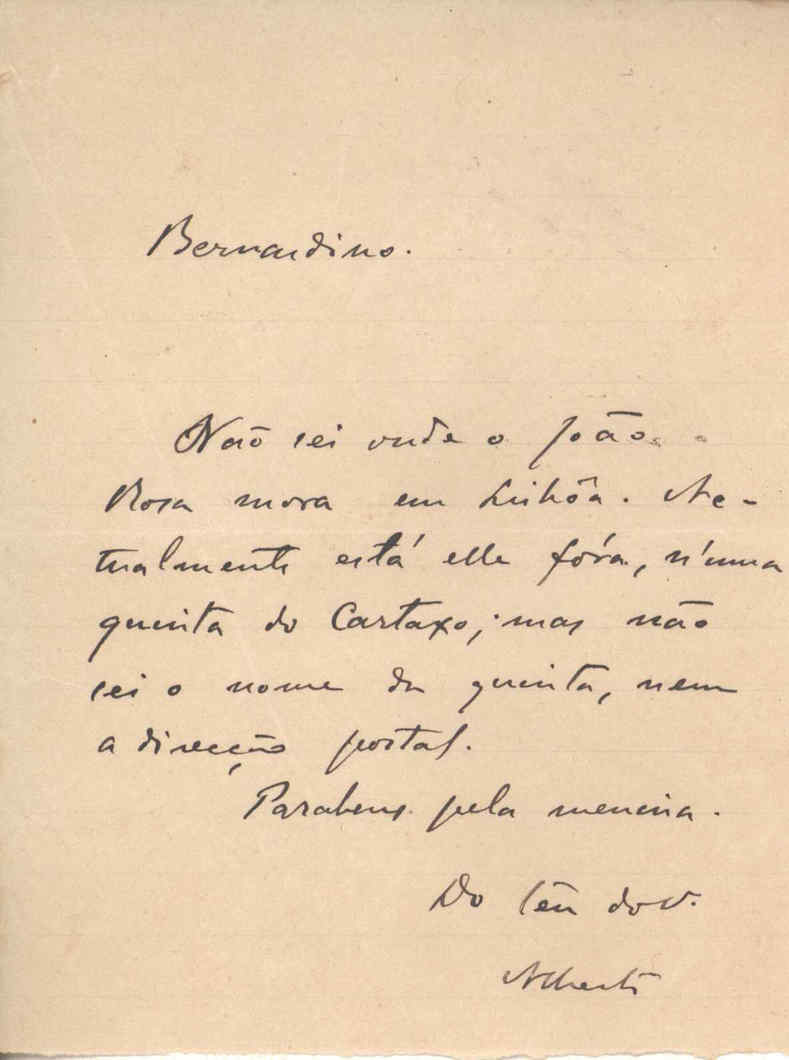 Bernardino.
Não sei onde o João
Rosa mora em Lisbôa. Ac-
tualmente está elle fóra, n'uma
quinta do Cartaxo; mas não
sei o nome da quinta, nem
a direcção postal.
Parabens pela menina.
Do teu
Alberto